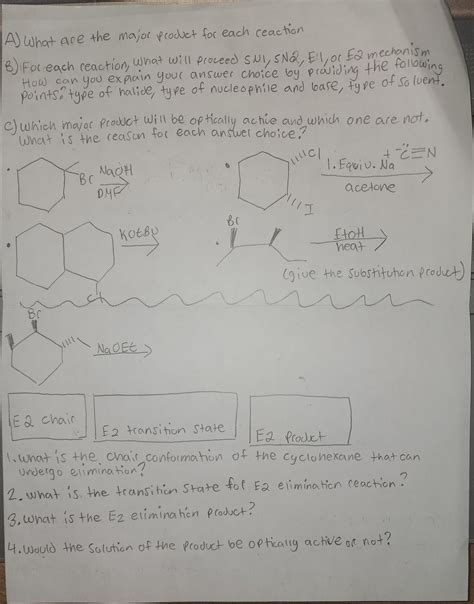 A) What are the major product for each reaction
B) For each reaction, what will proceed SN1, SN2, E1, or E2 mechanism
How can you explain your answer choice by providing the following
points? type of halide, type of nucleophile and base, type of solvent.
C) Which major product will be optically active and which one are not.
What is the reason for each answer choice?
Br NaOH
DMF
Cl
I
1. Equiv. Na + :C≡N
acetone
KOtBu
Cl
Br
EtOH
heat
(give the substitution product)
Br
NaOEt
E2 chair
E2 transition state
E2 Product
1. What is the chair conformation of the cyclohexane that can
undergo elimination?
2. What is the transition state for E2 elimination reaction?
3. What is the E2 elimination product?
4. Would the solution of the product be optically active or not?